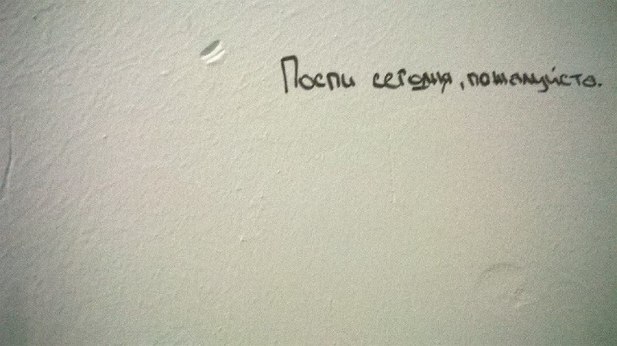 Поспи сегодня, пожалуйста.